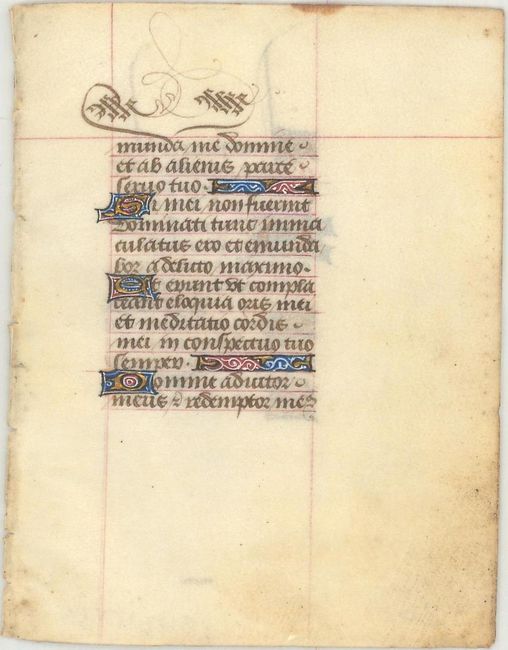 munda me domine
et ab alienis parce
servo tuo
Si mei non fuerint
Dominati tunc imma
culatus ero et emunda
bor a delicto maximo
Et erunt vt compla
ceant eloquia oris mei
et meditatio cordis
mei in conspectuo tuo
semper
Domine adiutor
meus & redemptor me9